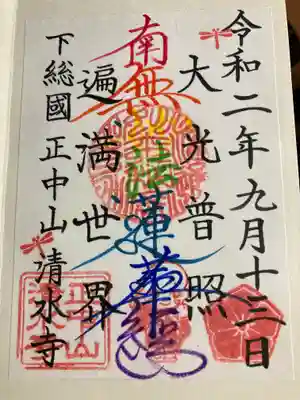 令和二年九月十三日
大光普照
南無妙法蓮華経
遍満世界
下総國 正中山 清水寺